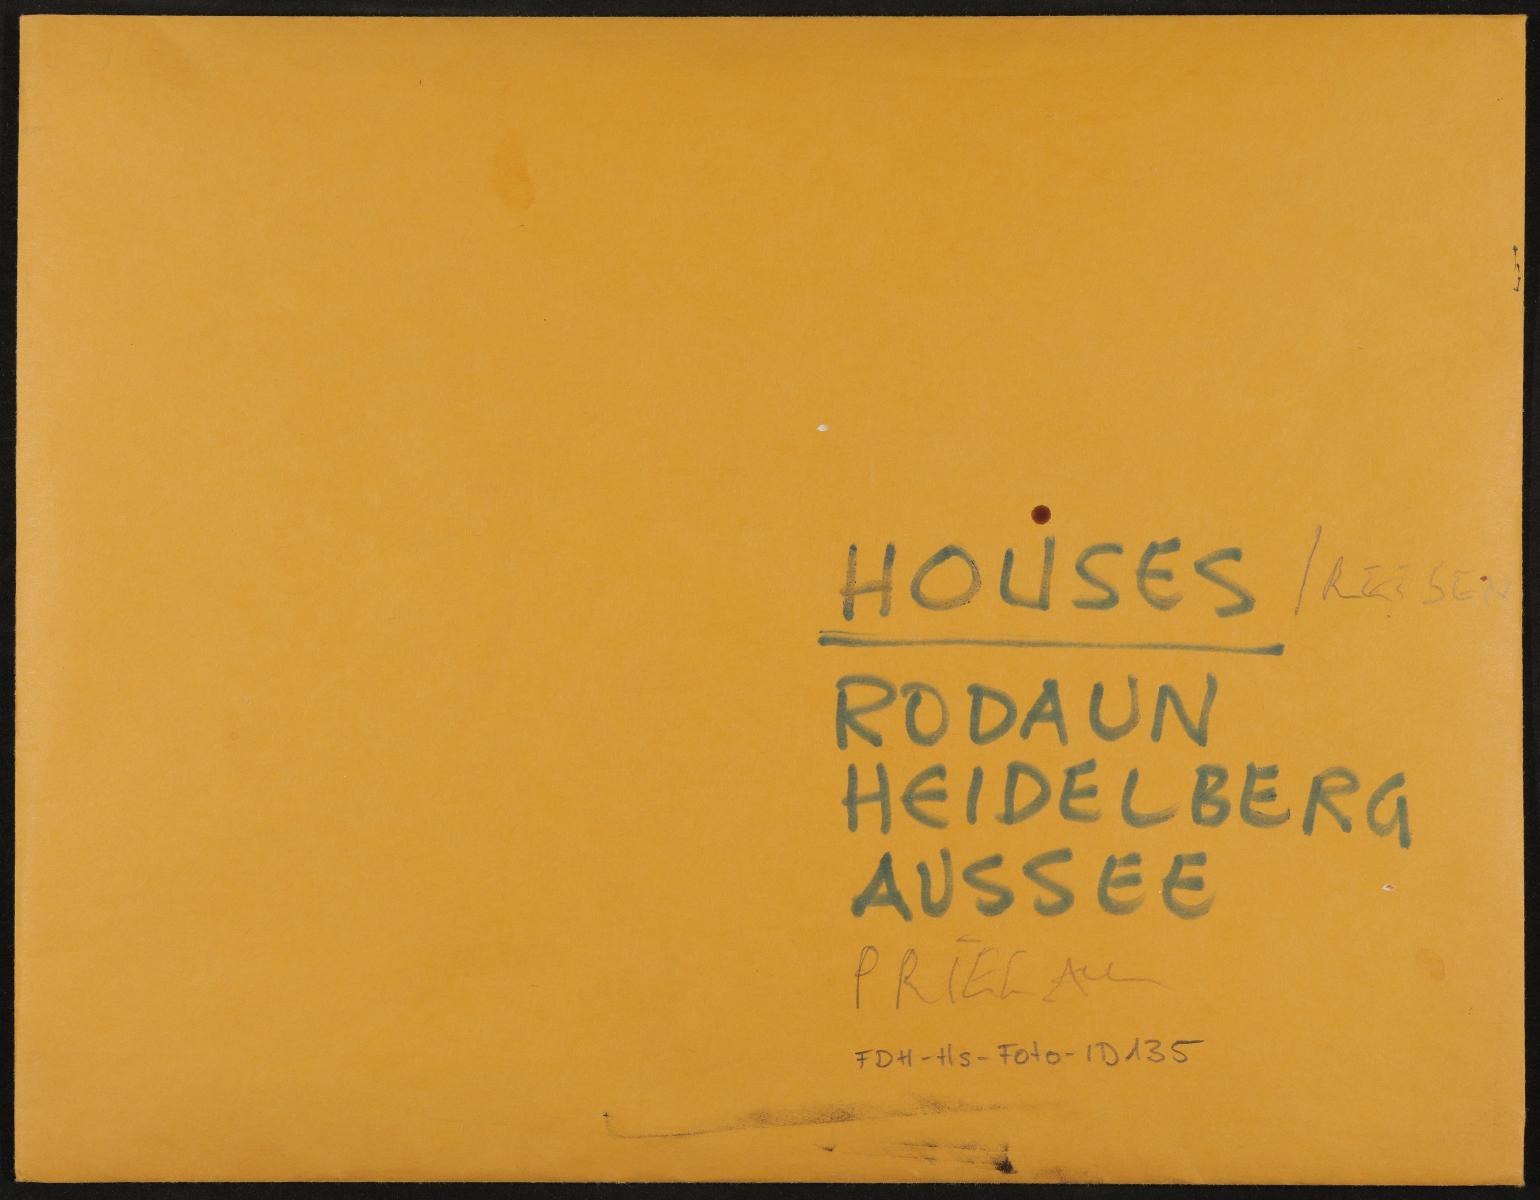 HOUSES / REISEN
RODAUN
HEIDELBERG
AUSSEE
PRIELAU
FDH-Hs-Foto-ID135